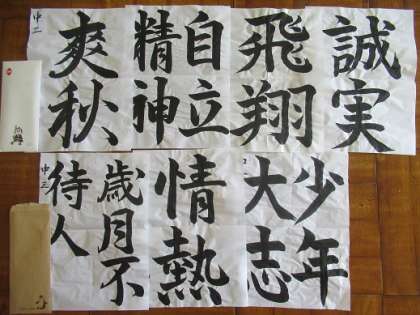 誠実
飛翔
自立
精神
中二
爽秋
少年
大志
情熱
歳月不
待人
中三